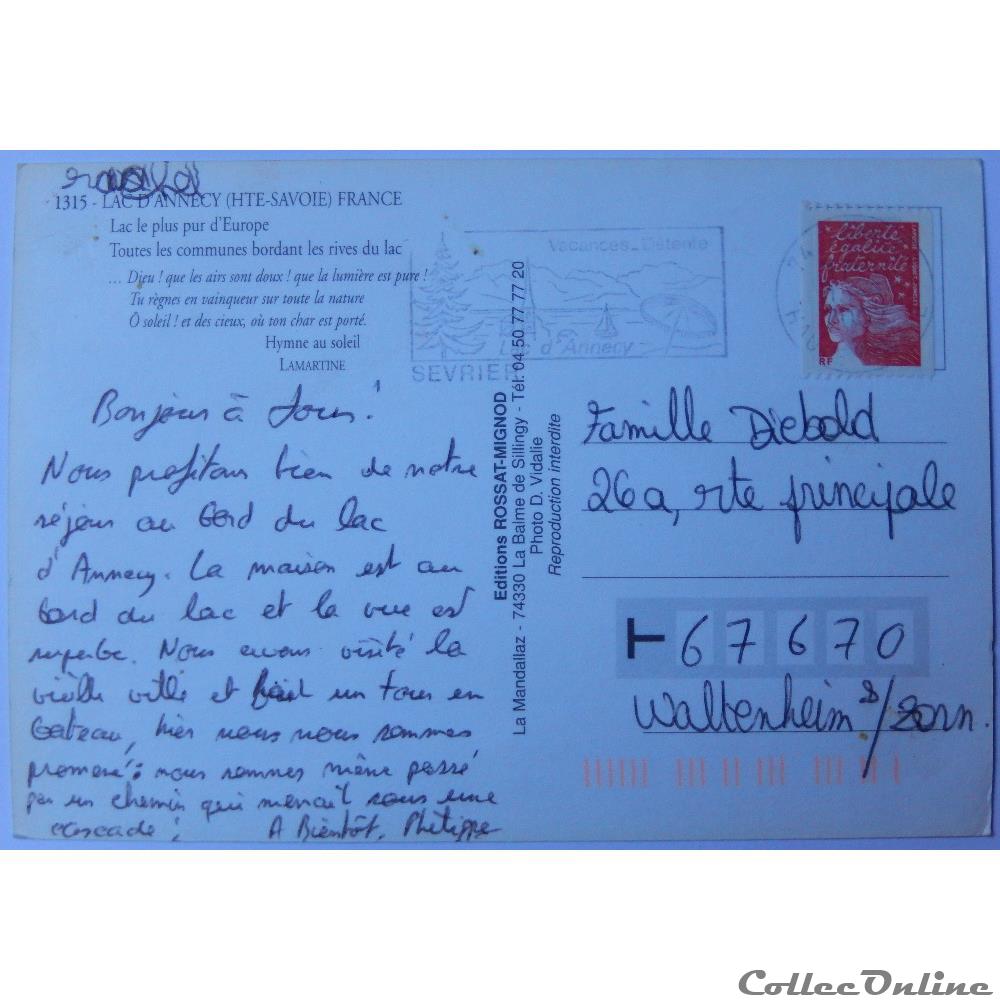 1315 - LAC D'ANNECY (HTE-SAVOIE) FRANCE
Lac le plus pur d'Europe
Toutes les communes bordant les rives du lac
... Dieu ! que les airs sont doux ! que la lumière est pure !
Tu règnes en vainqueur sur toute la nature
Ô soleil ! et des cieux, où ton char est porté.
Hymne au soleil
LAMARTINE
Vacances-Détente
Lac d'Annecy
SEVRIER
liberté
égalité
fraternité
RF
Bonjour à tous!
Nous profitons bien de notre
séjour au bord du lac
d'Annecy. La maison est au
bord du lac et la vue est
superbe. Nous avons visité la
vieille ville et fait un tour en
bateau, hier nous nous sommes
promené: nous sommes même passé
par un chemin qui menait sous une
cascade! A Bientôt, Philippe
Editions ROSSAT-MIGNOD
La Mandallaz - 74330 La Balme de Sillingy - Tél. 04 50 77 77 20
Photo D. Vidalie
Reproduction interdite
Famille Diebold
26a, rte principale
67670
Waltenheim s/Zorn.
CollecOnline